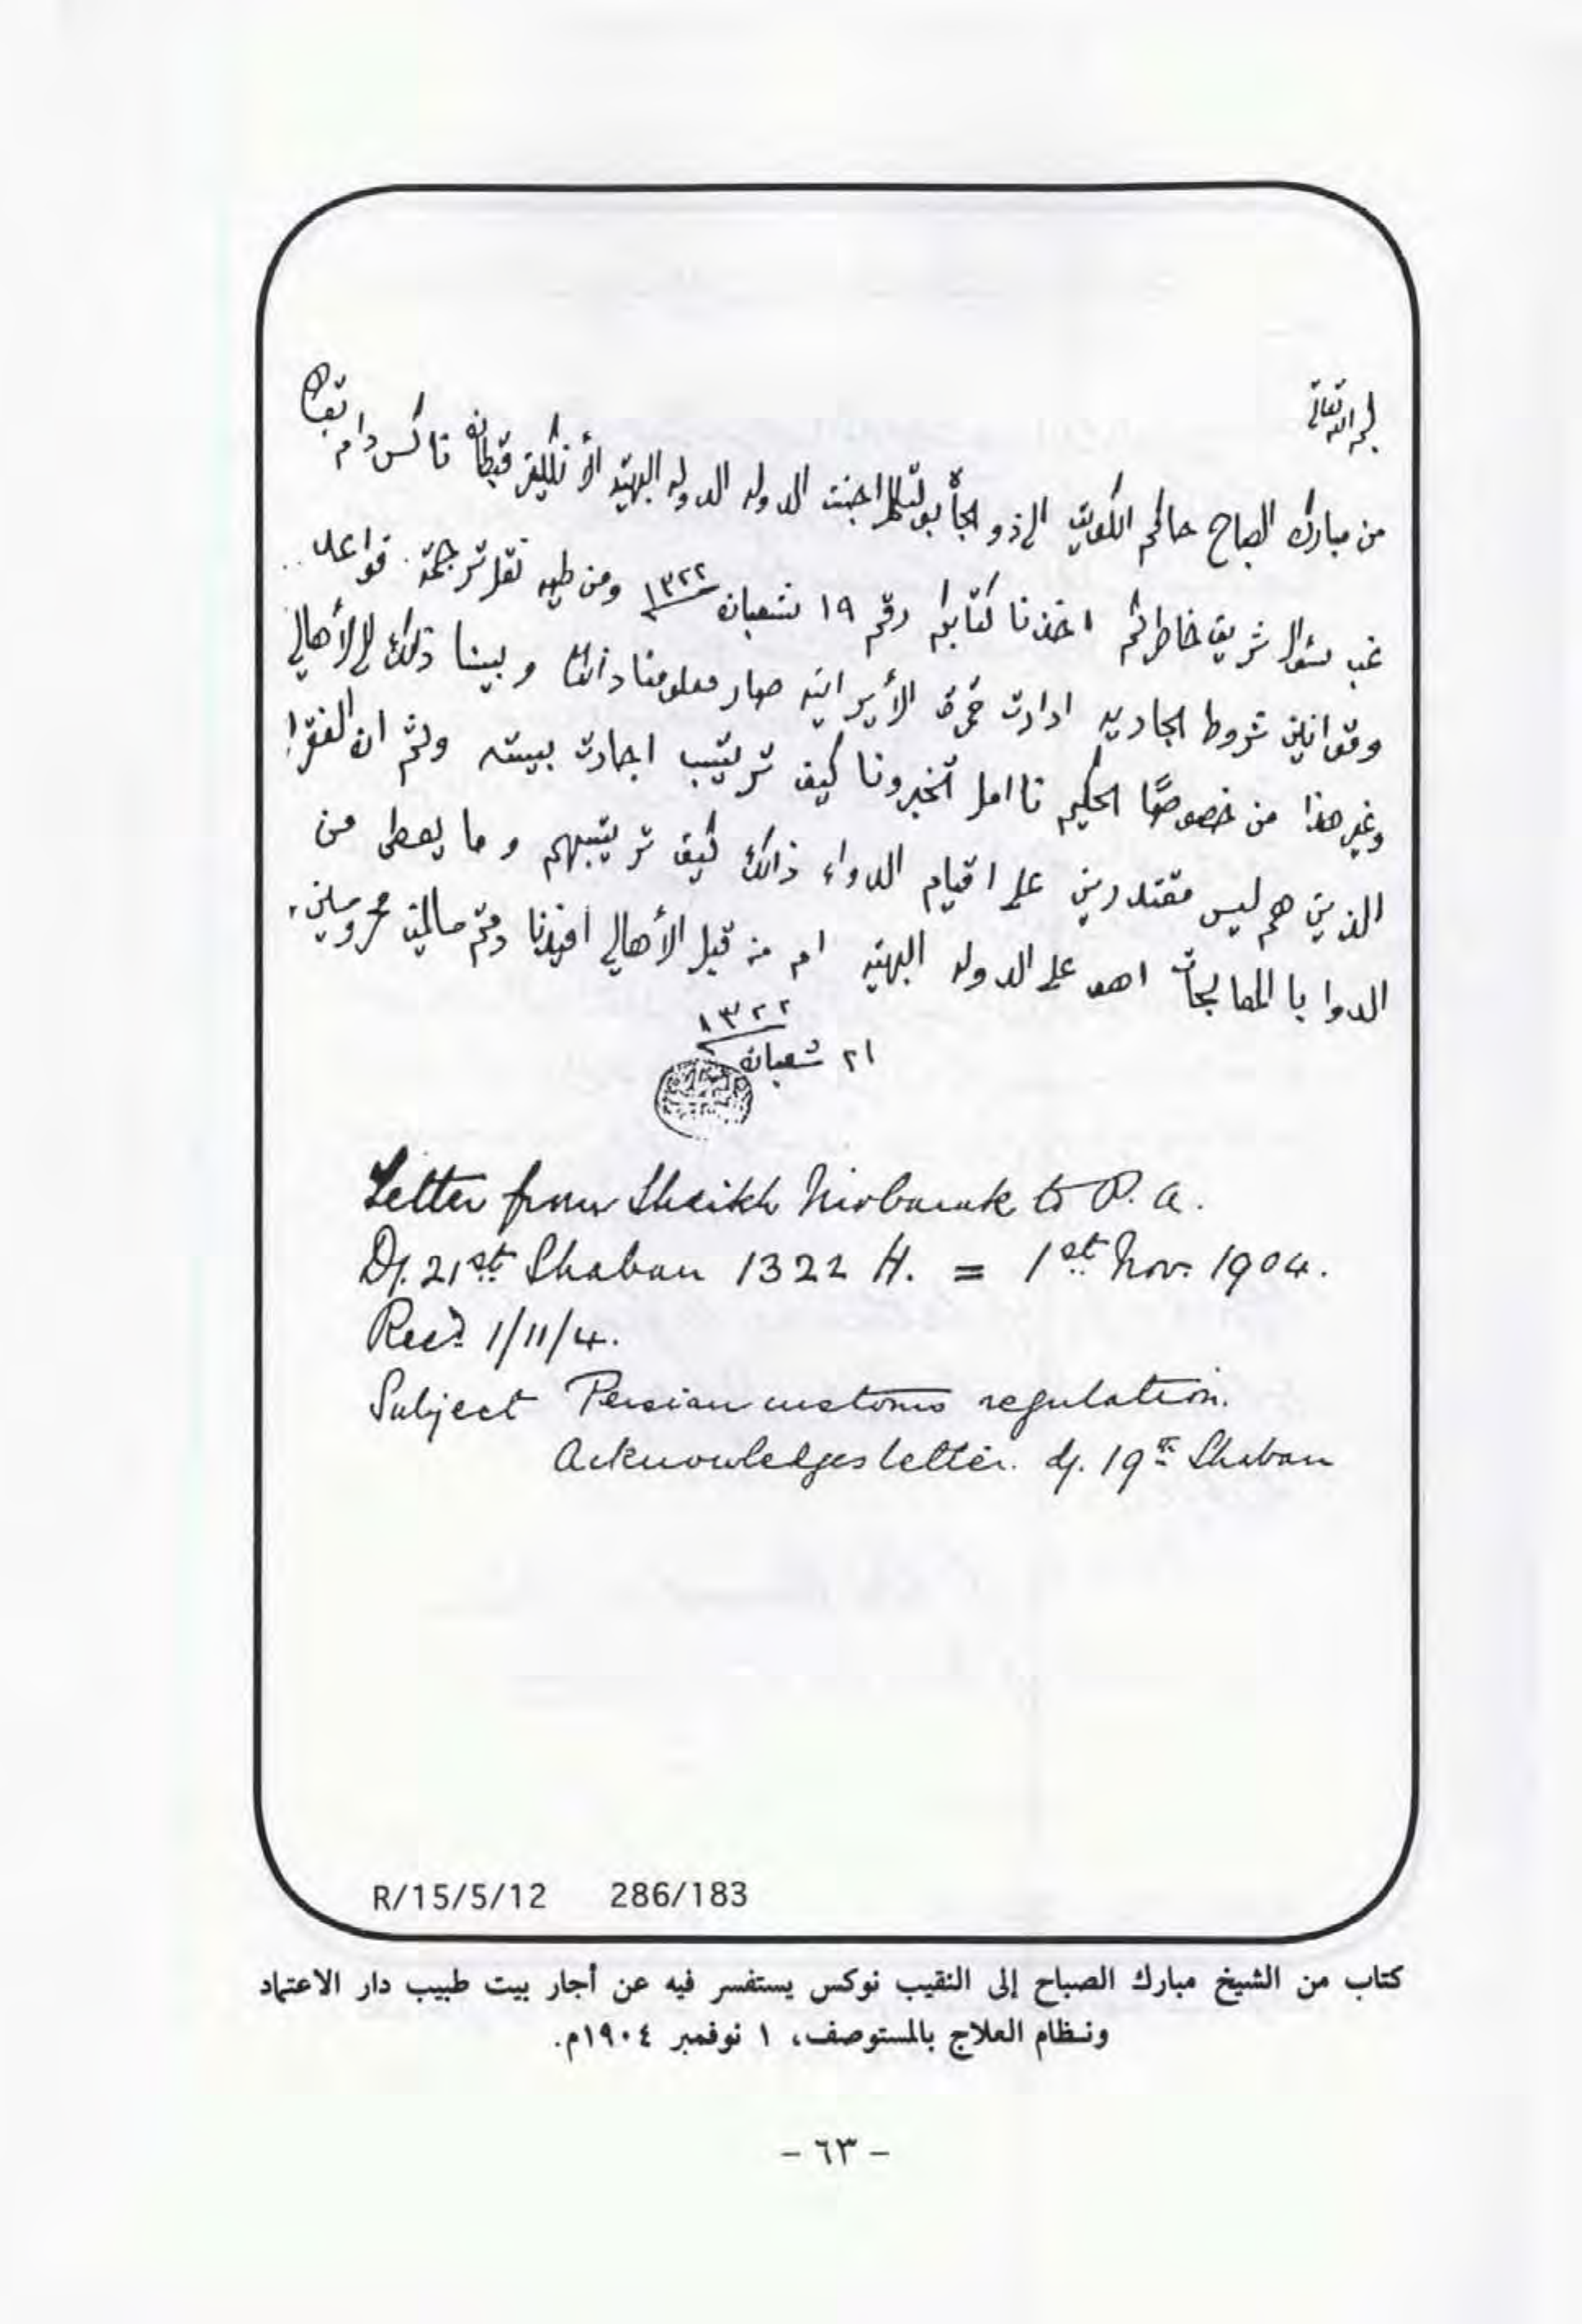 بسم الله تعالى
من مبارك الصباح حاكم الكويت الى ذو الجاه بولتيكل اجنت الدوله الدوله البهيّه الأنگليز قبطان ناكس دام بقاه
غب سئوال شريف خاطركم اخذنا كتابكم رقم ١٩ شعبان ١٣٢٢ ومن طيه نقل ترجمة قواعد
وقوانين شروط الجاريه ادارت گمرك الأيرانيه صار معلومنا ذالك وبينا ذلك الى الأهالي
وغير هذا من خصوصًا الحكيم ناامل تخبرونا كيف ترتيب اجارت بيته وثم ان الفقرا
الذين هم ليس مقتدرين على اقيام الدواء ذالك كيف ترتيبهم وما يعطى من
الدوا بالمعالجات اهو على الدوله البهيّه ام من قبل الأهالي افيدنا دمتم سالمين محروسين
٢١ شعبان ١٣٢٢
Letter from Sheikh Mobarak to P. A.
D/. 21st Shaban 1322 H. = 1st Nov. 1904.
Recd 1/11/4.
Subject Persian customs regulation.
Acknowledges letter. d/. 19th Shaban
R/15/5/12 286/183
كتاب من الشيخ مبارك الصباح إلى النقيب نوكس يستفسر فيه عن أجار بيت طبيب دار الاعتماد
ونظام العلاج بالمستوصف، ١ نوفمبر ١٩٠٤م.
- ٦٣ -